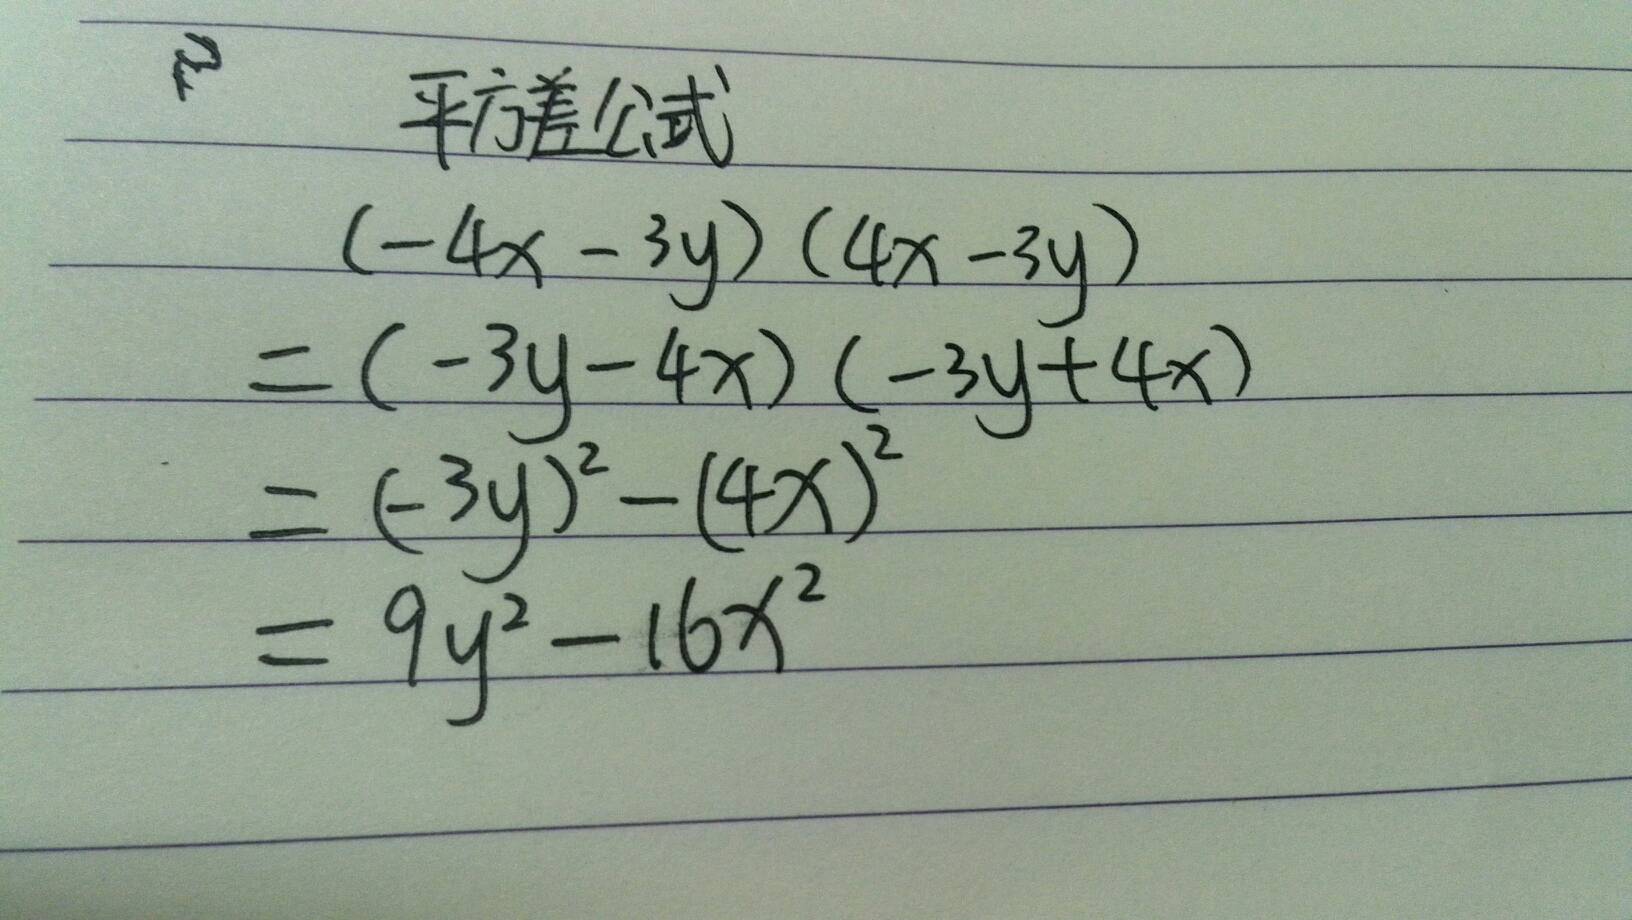 平方差公式
(-4x-3y)(4x-3y)
=(-3y-4x)(-3y+4x)
=(-3y)²-(4x)²
=9y²-16x²